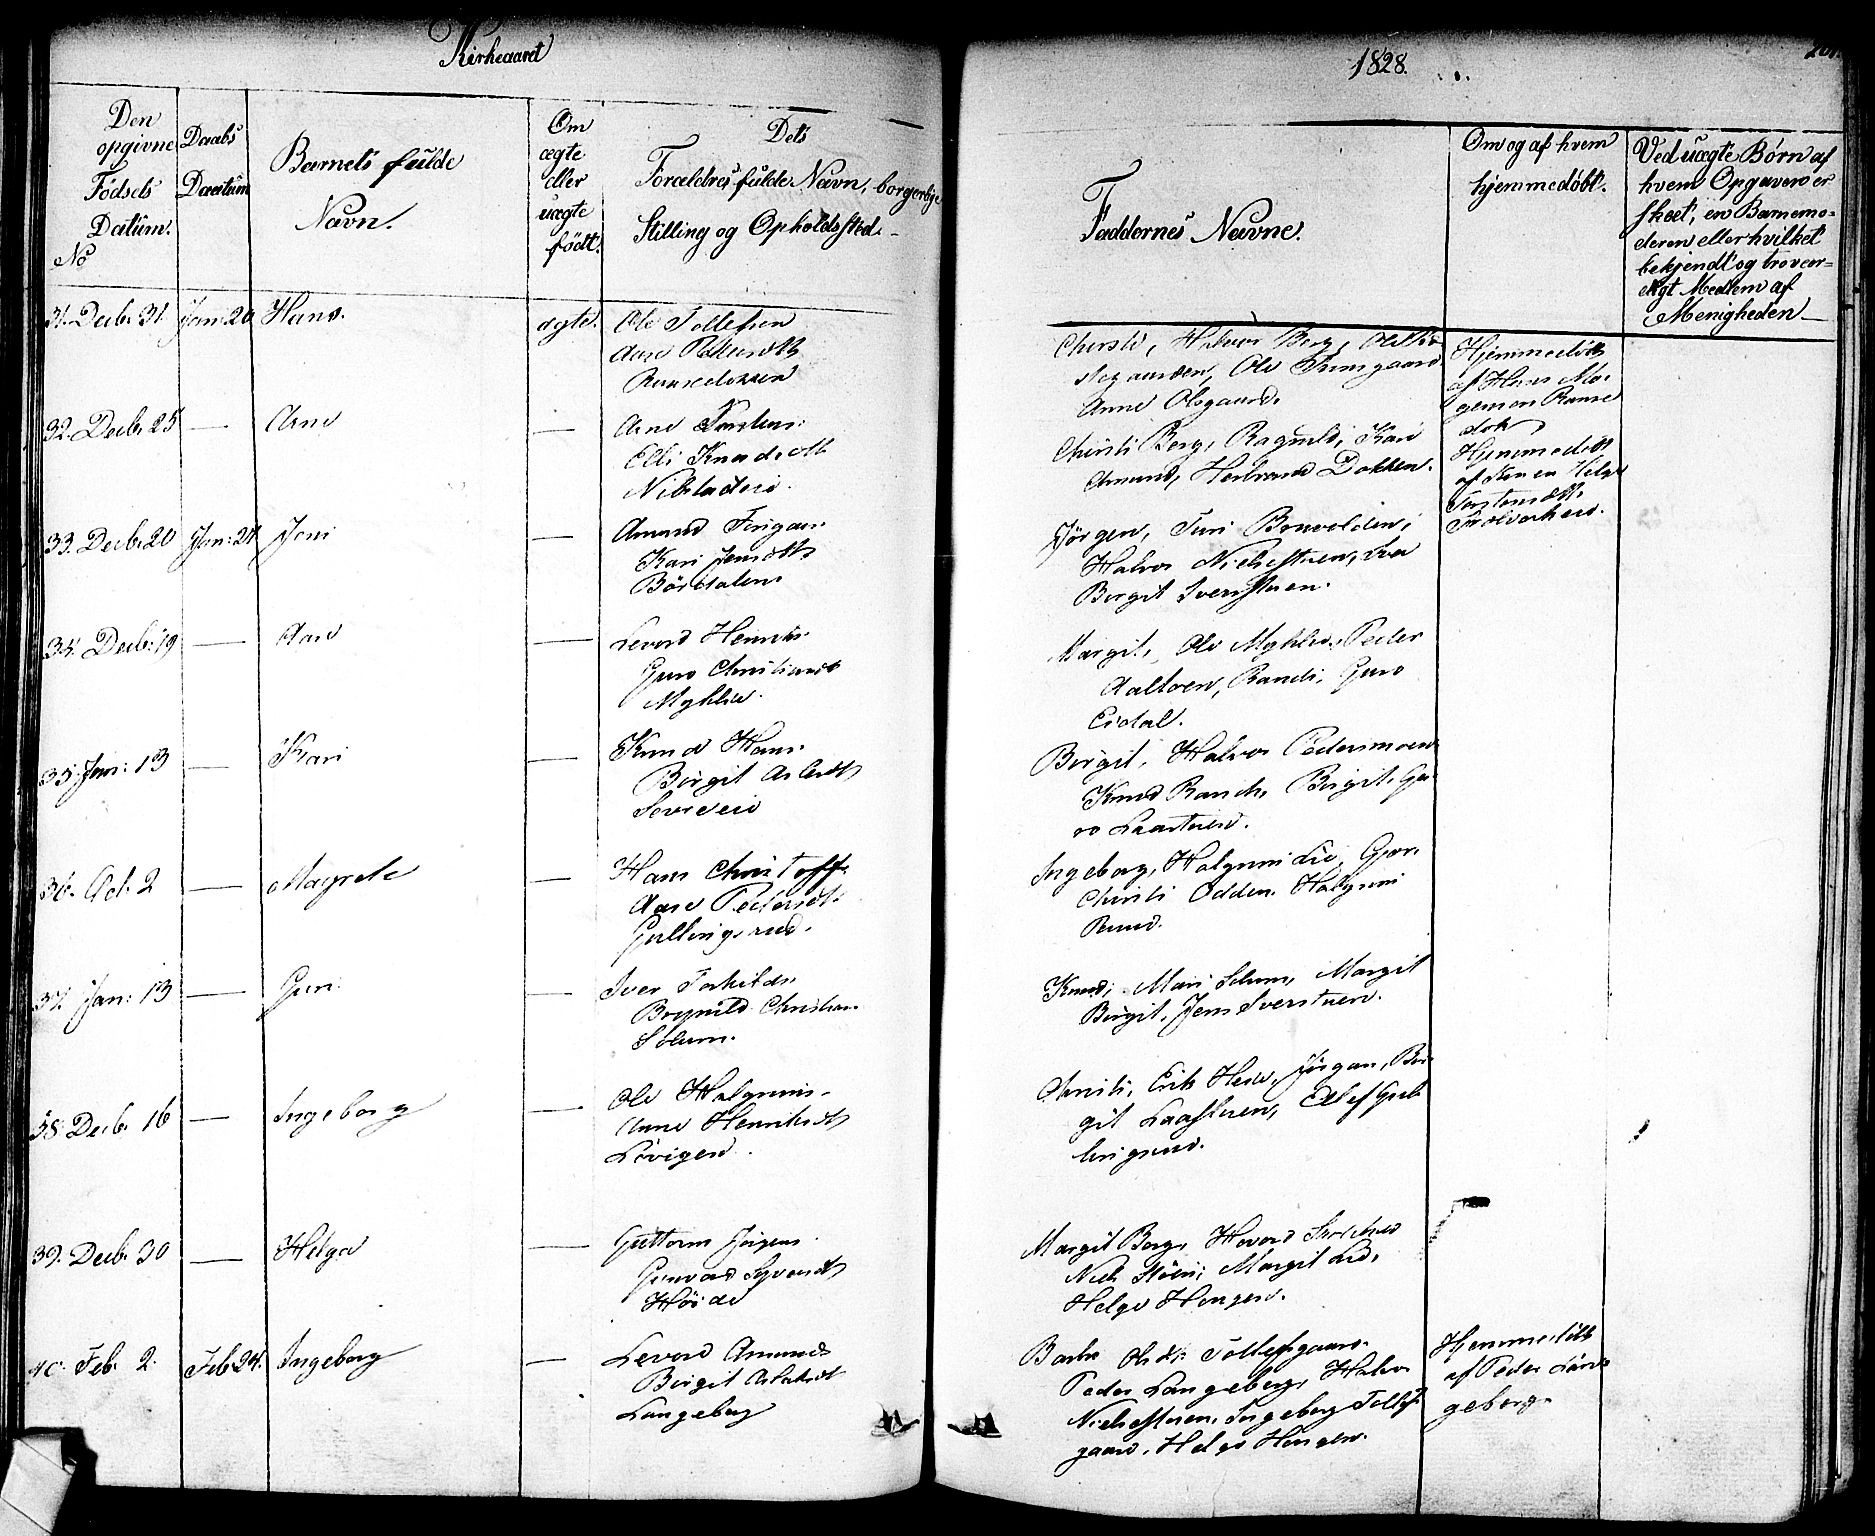 Kirkeaaret
1828.
Den
opgivne
Fødsels
Datum.
No
Daabs
Daatum
Barnets fulde
Navn.
Om
ægte
eller
uægte
født.
Dets
Forældres fulde Navn, borgerlige
Stilling og Opholdssted.
Faddernes Navne.
Om og af hvem
hjemmedøbt.
Ved uægte Børn af
hvem Opgaven er
skeet, en Barnemo-
deren eller hvilket
bekjendt og trovær-
digt Medlem af
Menigheden
31. Decb. 31. Jan: 20 Hans. ægte. Ole Tollefsen
Aase
Christi, Halvor Berg, Ole
Ole
Anne Olsgaard.
Hjemmedøbt
af Hans Mo-
gensen Ranse
dok
32. Decb. 25 — Arne — Arne Torstens:
Elli Knudsdtt
Nibstadeie.
Christi Berg, Ragnild, Kari
Amund, Herbrand Dokken.
Hjemmedøbt
af Konen Helge
Torstensdtt
33. Decb. 20 Jan: 27 Joni — Amund Jörgan:
Kari Jensdtt
Börtdalen
Jörgen, Turi
Halvor Nielsstuen,
Birgit Iversstuen.
34. Decb. 19 — Aase — Levord Henriks:
Guro Christiansdt
Myhlie.
Margit, Ole Myhlie, Peder
Randi, Guro
Eidal.
35. Jan: 13 — Kari — Knud Hans:
Birgit Asledtt
Birgit, Halvor Pedersmoen
Knud Birgit, Gu-
ro Laastuen.
36. Oct. 2 — Margrete — Hans Christoff.
Aase Pedersdt.
Gullingsrud.
Ingeborg, Halgrim Lie,
Christi Odden, Halgrim
Ruud.
37. Jan: 13 — Guri — Iver Torkilds.
Bognild Christian.
Solum.
Knud, Mari Solum, Margit
Birgit, Jens Iverstuen.
38. Decb. 16 — Ingeborg — Ole Halgrims.
Anne Henriksdtt
Lövigen.
Christi, Erik Jörgan, Bir-
git Laastuen, Gul-
lingsrud.
39. Decb. 30 — Helga — Guttorm Jörgens.
Gunvord Syverdtt
Höide
Margit Berg, Hovord
Niels Margit Lie,
Helge Hongen.
40. Feb. 2. Feb 24. Ingeborg — Levord Amunds
Birgit Asledtt
Langeberg
Barbr Olsdt: Tollefsgaard.
Peder Langeberg, Halvor
Nielsstuen, Ingeborg Tollefs
gaard, Helge Hongen.
Hjemmedöbt
af Peder Lan-
geberg.